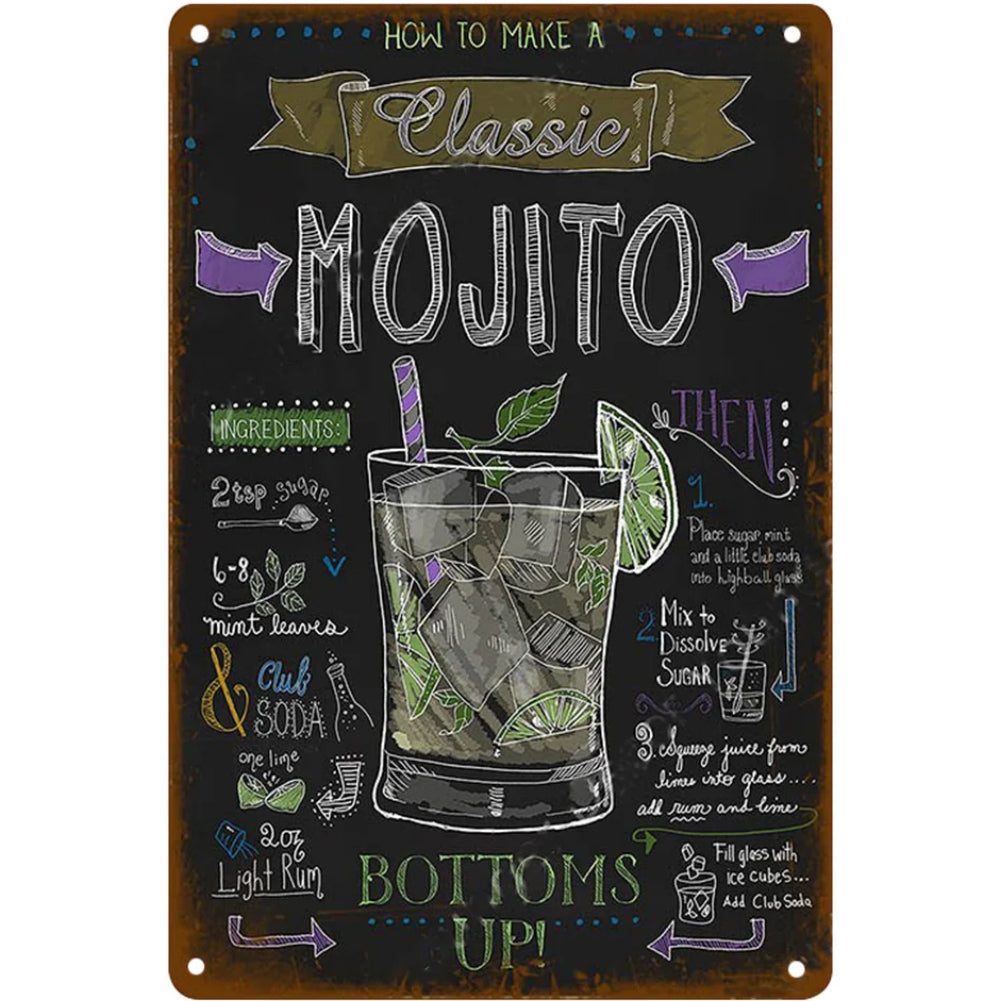 HOW TO MAKE A
Classic
MOJITO
INGREDIENTS:
2 tsp sugar
6-8
mint leaves
& Club
SODA
one lime
2 oz
Light Rum
THEN:
1.
Place sugar, mint
and a little club soda
into highball glass
2. Mix to
Dissolve
SUGAR
3. Squeeze juice from
limes into glass....
add rum and lime
Fill glass with
ICE CUBES...
ADD Club Soda
BOTTOMS
UP!